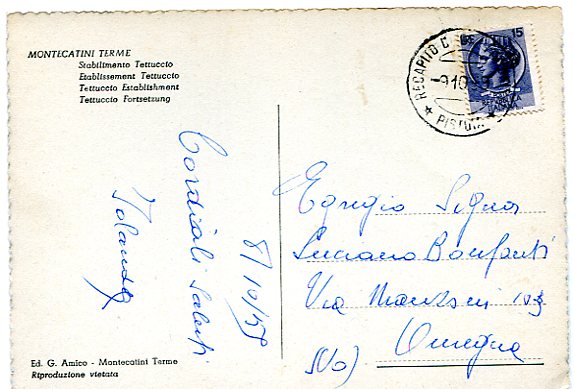 MONTECATINI TERME
Stabilimento Tettuccio
Etablissement Tettuccio
Tettuccio Establishment
Tettuccio Fortsetzung
15
RECAPITO
PISTOIA
8/10/59
Cordiali saluti
Jolanda
Egregio Signor
Luciano Bonfanti
Via Manzoni 103
Omegna
(No)
Ed. G. Amico - Montecatini Terme
Riproduzione vietata